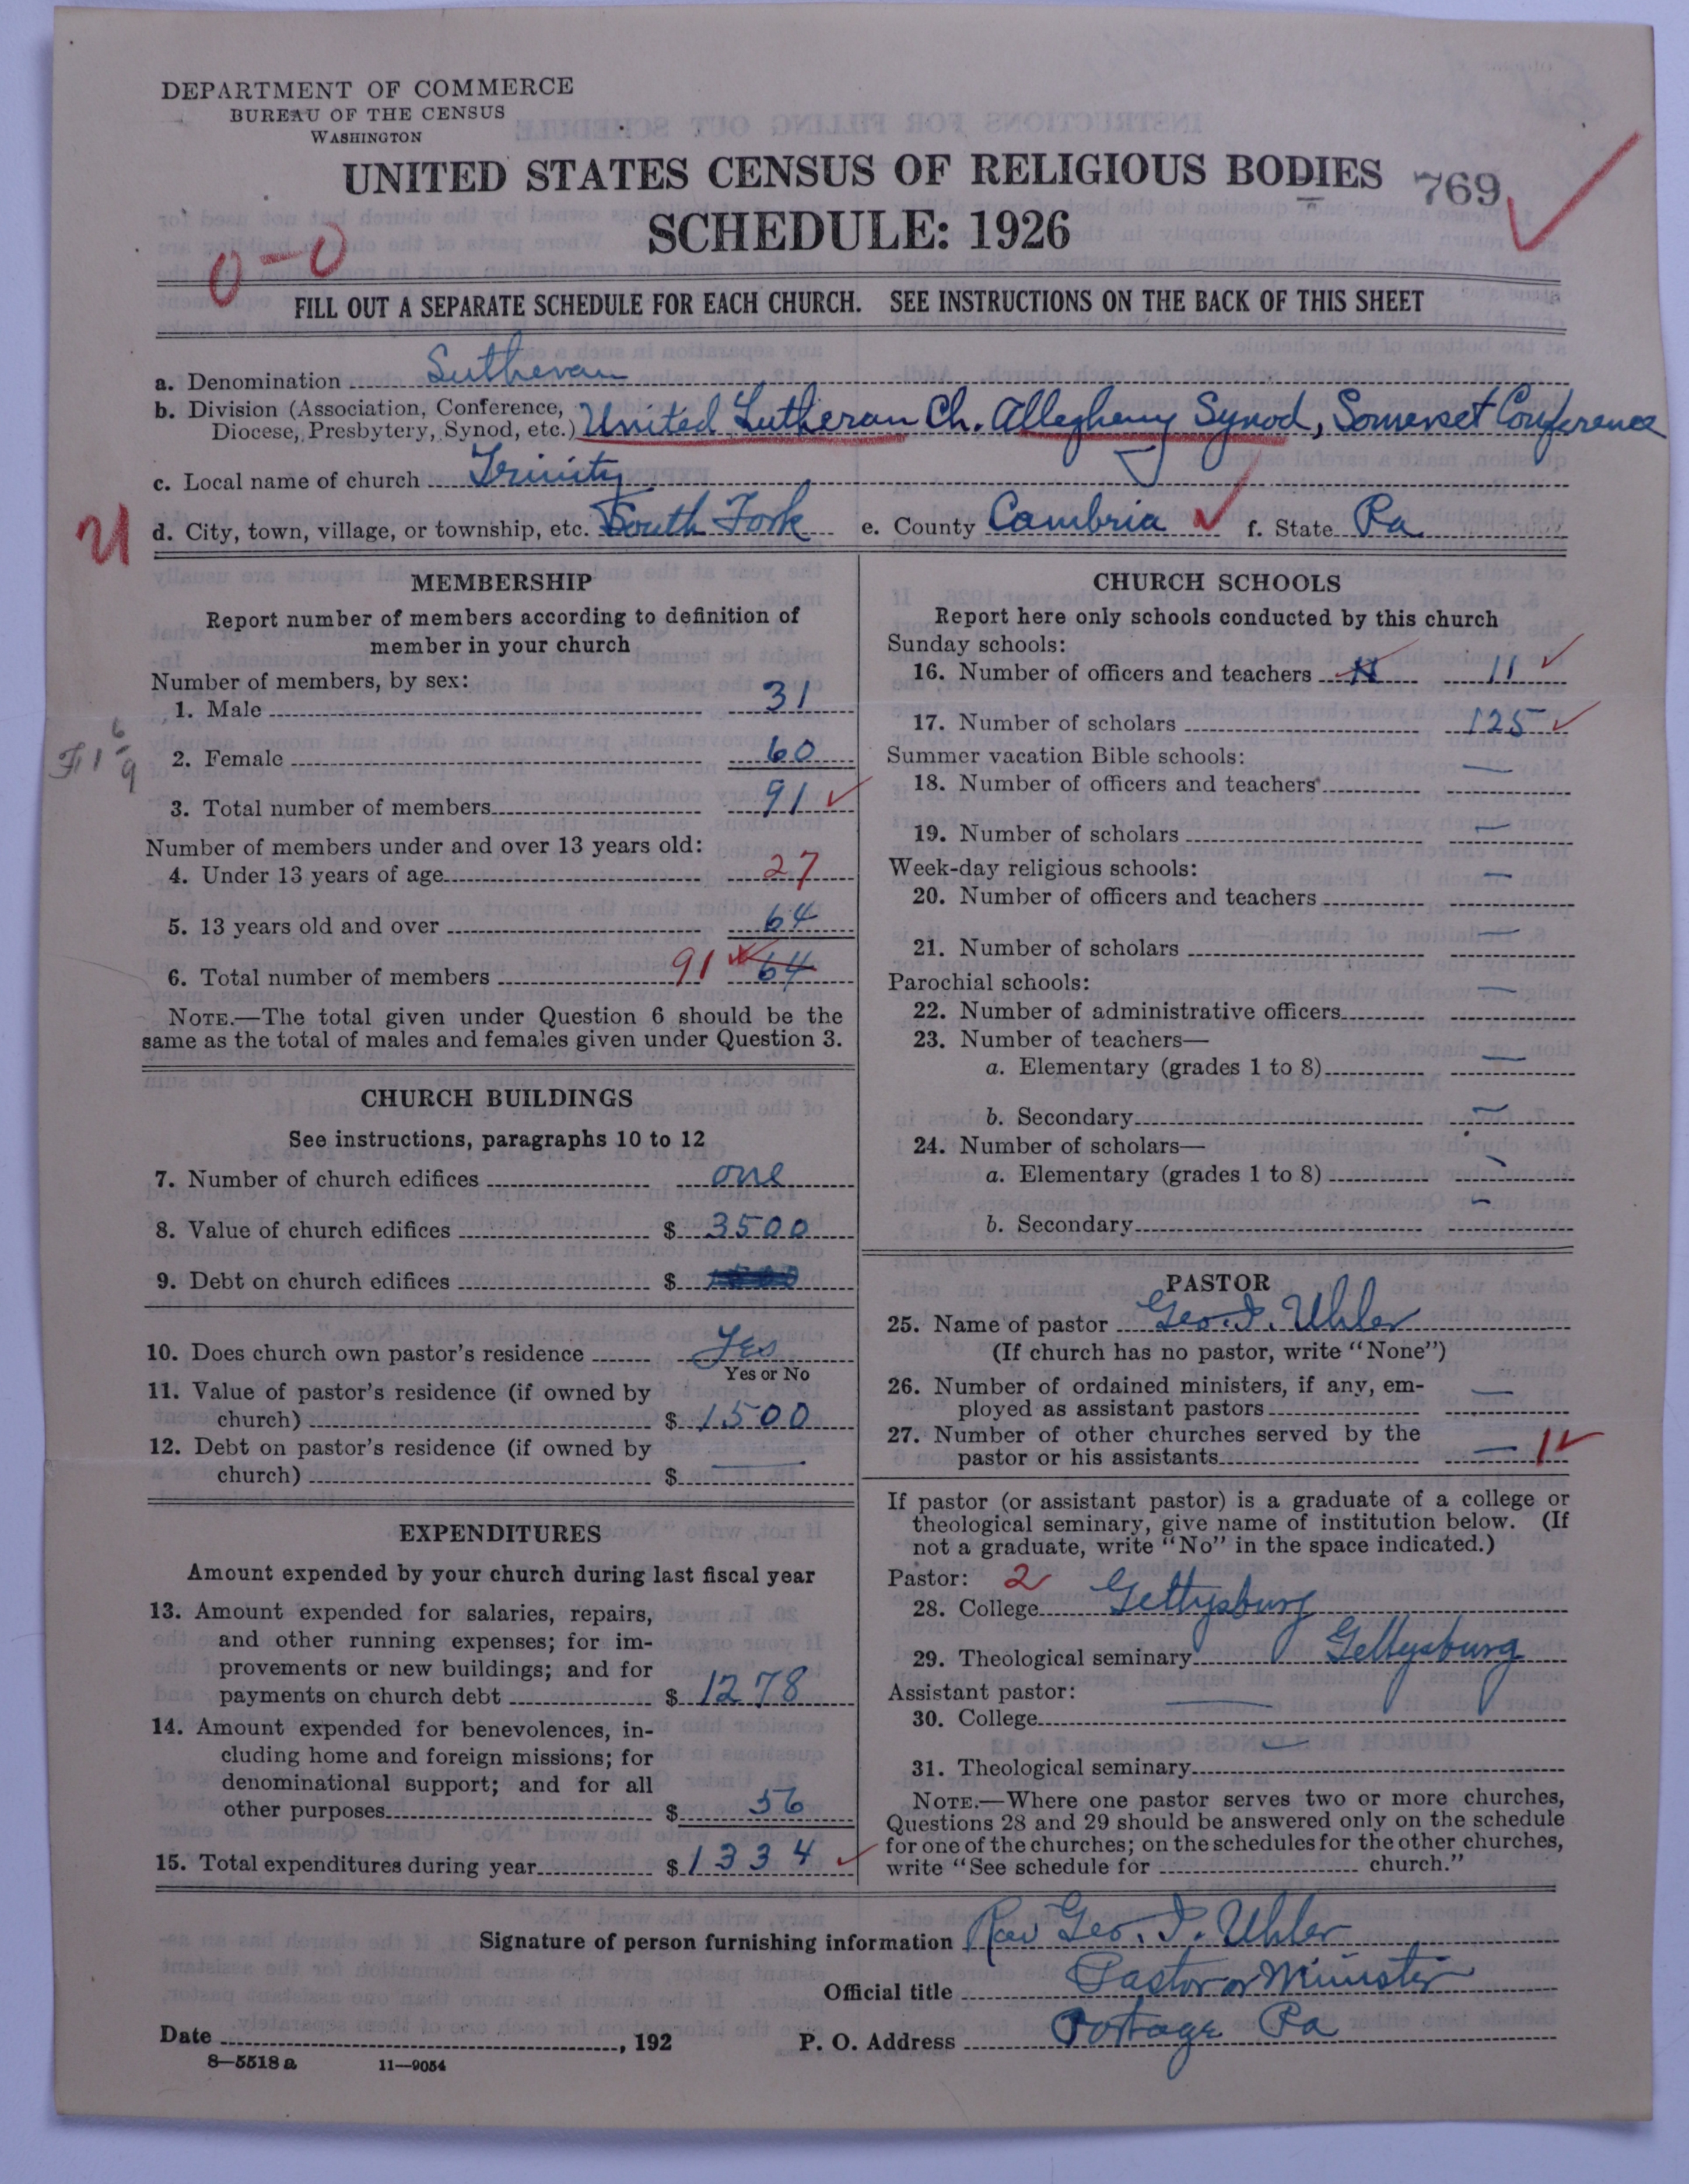 DEPARTMENT OF COMMERCE
BUREAU OF THE CENSUS
WASHINGTON
UNITED STATES CENSUS OF RELIGIOUS BODIES 769
SCHEDULE: 1926
0-0
FILL OUT A SEPARATE SCHEDULE FOR EACH CHURCH. SEE INSTRUCTIONS ON THE BACK OF THIS SHEET
a. Denomination Lutheran
b. Division (Association, Conference, Diocese, Presbytery, Synod, etc.) United Lutheran Ch. Allegheny Synod, Somerset Conference
c. Local name of church Trinity
d. City, town, village, or township, etc. South Fork e. County Cambria f. State Pa
MEMBERSHIP
Report number of members according to definition of
member in your church
Number of members, by sex:
1. Male 31
2. Female 60
3. Total number of members 91
Number of members under and over 13 years old:
4. Under 13 years of age 27
5. 13 years old and over 64
6. Total number of members 91 64
NOTE.—The total given under Question 6 should be the
same as the total of males and females given under Question 3.
CHURCH BUILDINGS
See instructions, paragraphs 10 to 12
7. Number of church edifices one
8. Value of church edifices $ 3500
9. Debt on church edifices $
10. Does church own pastor's residence Yes
Yes or No
11. Value of pastor's residence (if owned by
church) $ 1500
12. Debt on pastor's residence (if owned by
church) $ —
EXPENDITURES
Amount expended by your church during last fiscal year
13. Amount expended for salaries, repairs,
and other running expenses; for im-
provements or new buildings; and for
payments on church debt $ 1278
14. Amount expended for benevolences, in-
cluding home and foreign missions; for
denominational support; and for all
other purposes $ 56
15. Total expenditures during year $ 1334
CHURCH SCHOOLS
Report here only schools conducted by this church
Sunday schools:
16. Number of officers and teachers 11
17. Number of scholars 125
Summer vacation Bible schools:
18. Number of officers and teachers —
19. Number of scholars —
Week-day religious schools:
20. Number of officers and teachers —
21. Number of scholars —
Parochial schools:
22. Number of administrative officers —
23. Number of teachers—
a. Elementary (grades 1 to 8) —
b. Secondary —
24. Number of scholars—
a. Elementary (grades 1 to 8) —
b. Secondary —
PASTOR
25. Name of pastor Geo. I. Uhler
(If church has no pastor, write "None")
26. Number of ordained ministers, if any, em-
ployed as assistant pastors —
27. Number of other churches served by the
pastor or his assistants — 1
If pastor (or assistant pastor) is a graduate of a college or
theological seminary, give name of institution below. (If
not a graduate, write "No" in the space indicated.)
Pastor: 2
28. College Gettysburg
29. Theological seminary Gettysburg
Assistant pastor:
30. College —
31. Theological seminary —
NOTE.—Where one pastor serves two or more churches,
Questions 28 and 29 should be answered only on the schedule
for one of the churches; on the schedules for the other churches,
write "See schedule for church."
Signature of person furnishing information Rev Geo. I. Uhler
Official title Pastor or Minister
Date , 192 P. O. Address Portage Pa
8—5518 a 11—9054